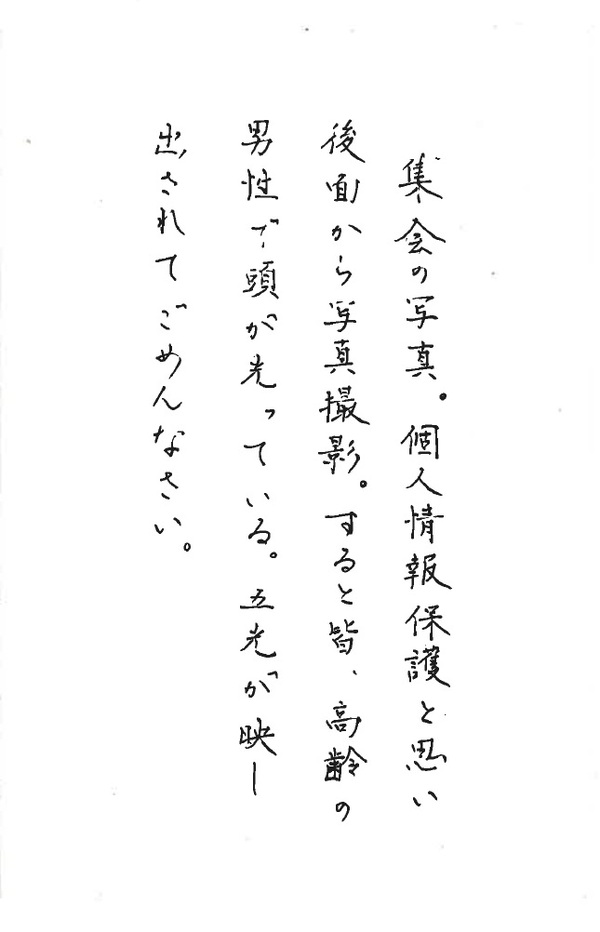 集会の写真。個人情報保護と思い
後面から写真撮影。すると皆、高齢の
男性で頭が光っている。五光が映し
出されてごめんなさい。